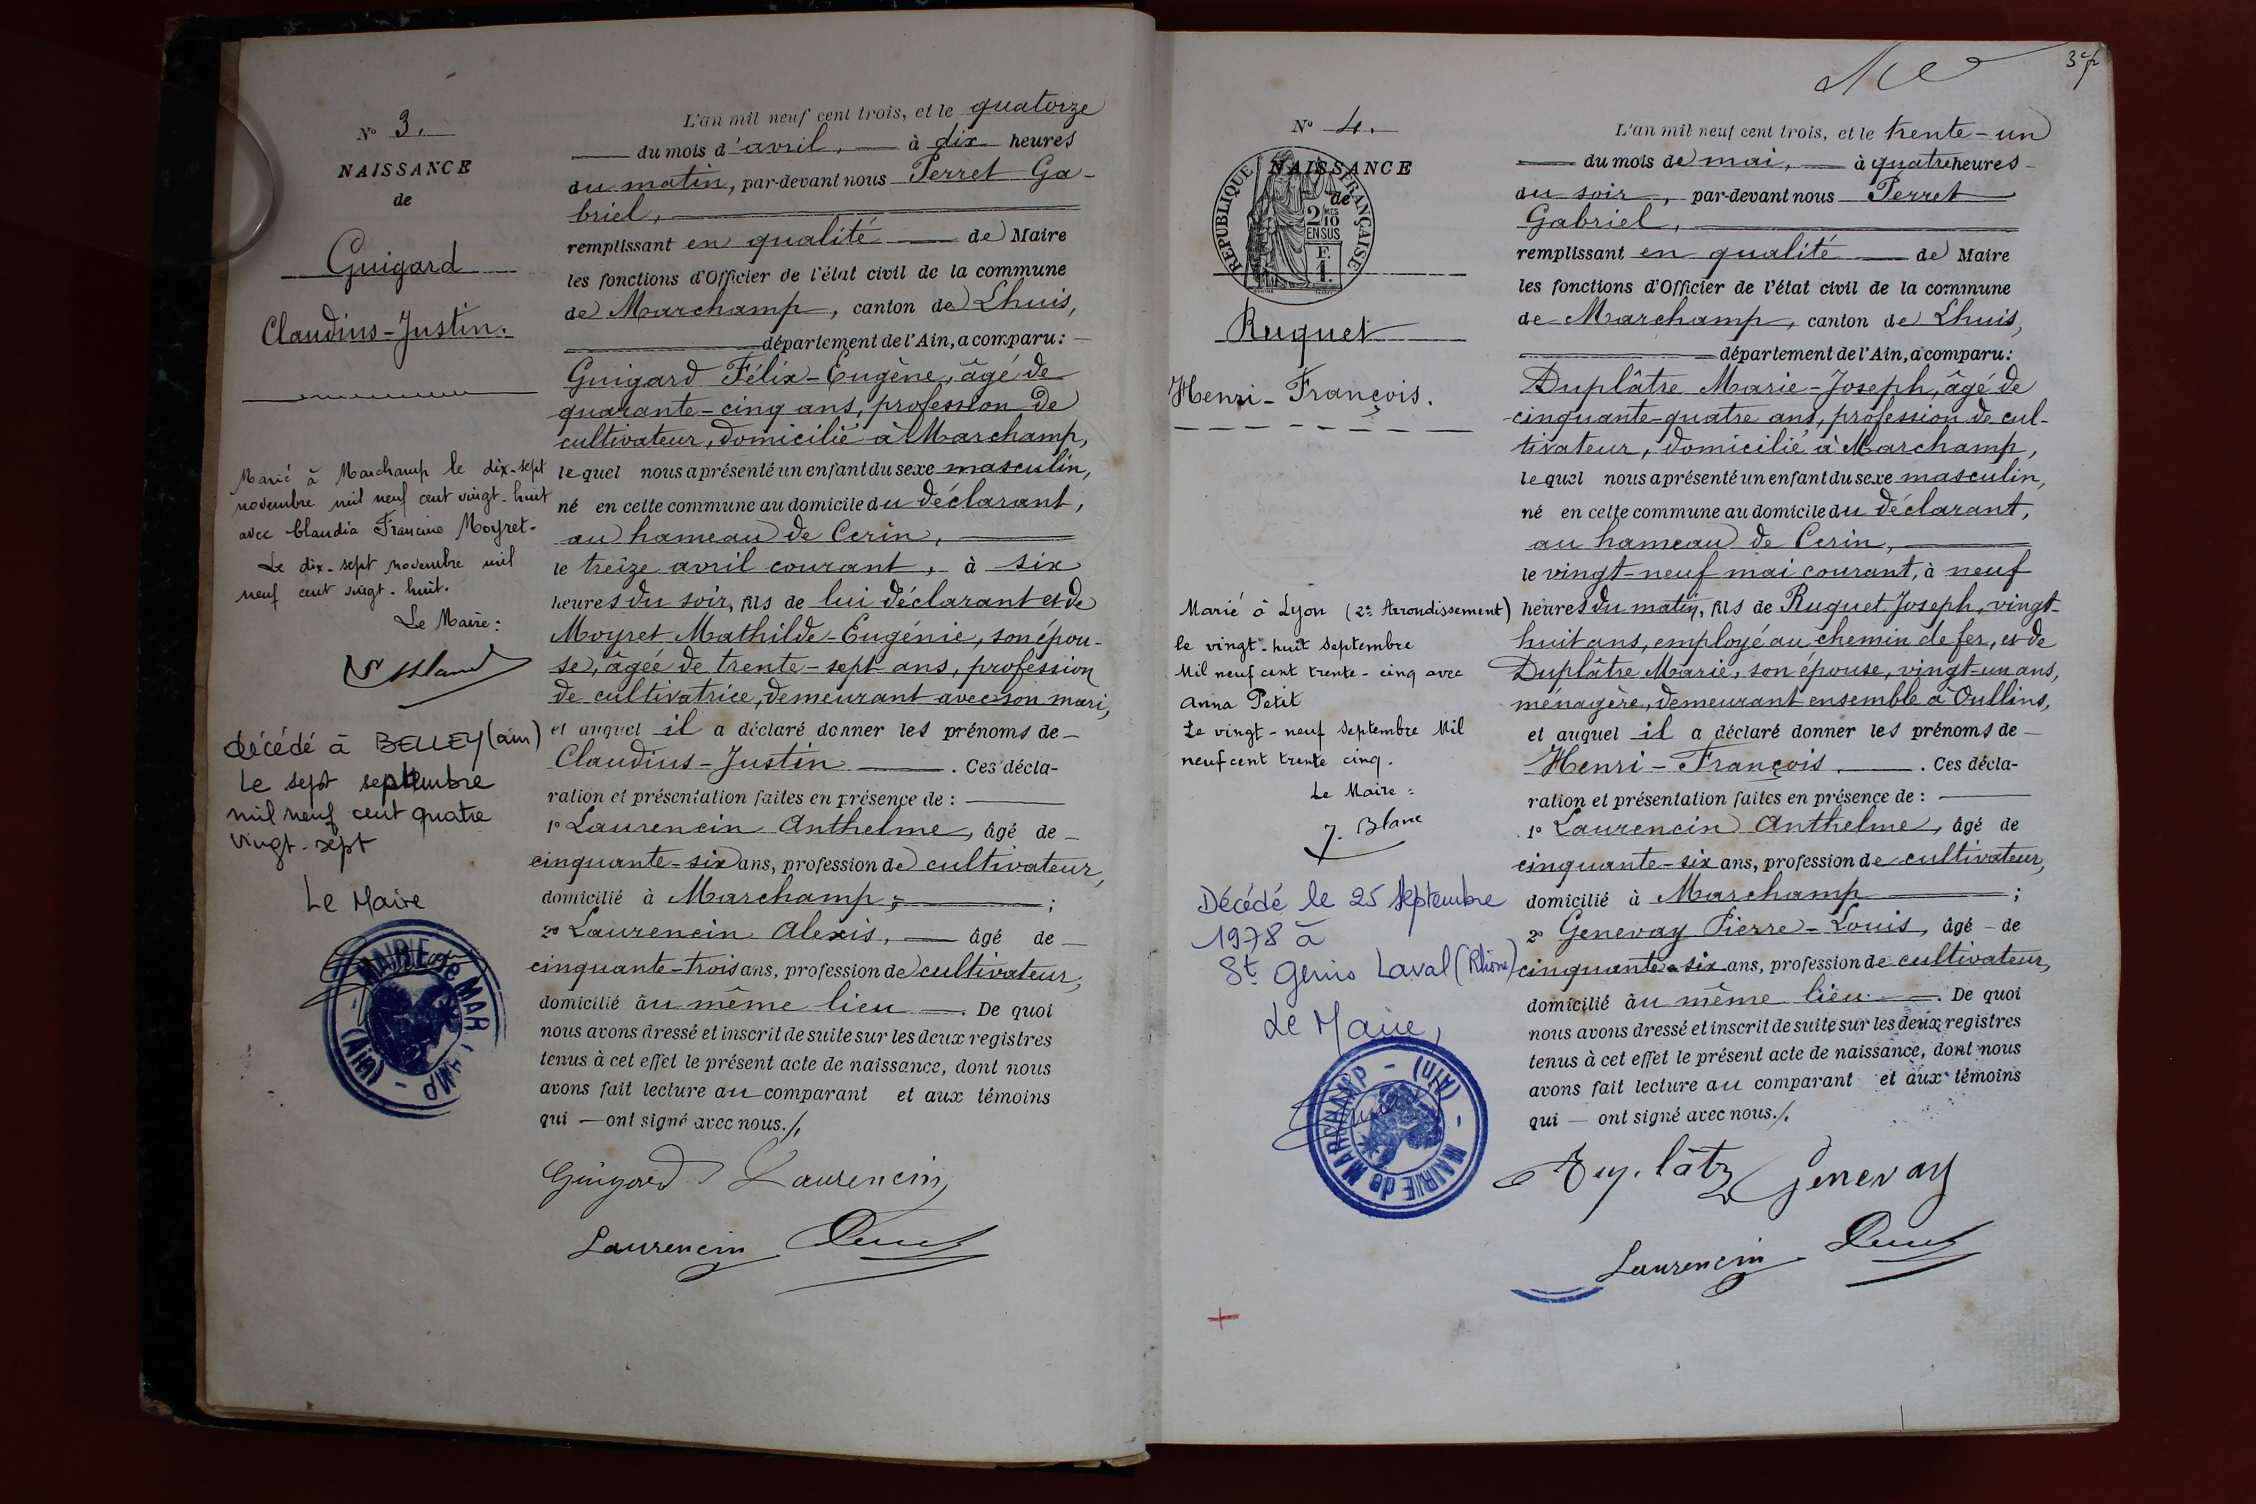 N° 3.
NAISSANCE
de
Guigard
Claudius-Justin.
Marié à Marchamp le dix-sept
novembre mil neuf cent vingt-huit
avec Claudia Francine Moyret.
Le dix-sept novembre mil
neuf cent vingt-huit.
Le Maire:
décédé à BELLEY (ain)
Le sept septembre
mil neuf cent quatre
vingt-sept
Le Maire
MAIRIE de MARCHAMP - (Ain) -
L'an mil neuf cent trois, et le quatorze
du mois d'avril, à dix heures
du matin, par-devant nous Perret Ga-
briel,
remplissant en qualité de Maire
les fonctions d'Officier de l'état civil de la commune
de Marchamp, canton de Lhuis,
département de l'Ain, a comparu:
Guigard Félix-Eugène, âgé de
quarante-cinq ans, profession de
cultivateur, domicilié à Marchamp,
lequel nous a présenté un enfant du sexe masculin,
né en cette commune au domicile du déclarant,
au hameau de Cerin,
le treize avril courant, à six
heures du soir, fils de lui déclarant et de
Moyret Mathilde-Eugénie, son épou-
se, âgée de trente-sept ans, profession
de cultivatrice, demeurant avec son mari,
et auquel il a déclaré donner les prénoms de
Claudius-Justin. Ces décla-
ration et présentation faites en présence de :
1° Laurencin Anthelme, âgé de
cinquante-six ans, profession de cultivateur,
domicilié à Marchamp ;
2° Laurencin Alexis, âgé de
cinquante-trois ans, profession de cultivateur,
domicilié au même lieu. De quoi
nous avons dressé et inscrit de suite sur les deux registres
tenus à cet effet le présent acte de naissance, dont nous
avons fait lecture au comparant et aux témoins
qui ont signé avec nous./.
Guigard Laurencin
Laurencin
3e f.
N° 4.
NAISSANCE
de
REPUBLIQUE FRANÇAISE
2/10 EN SUS
1 F.
Ruquet
Henri-François.
Marié à Lyon (2e Arrondissement)
le vingt-huit septembre
Mil neuf cent trente-cinq avec
Anna Petit
Le vingt-neuf septembre Mil
neuf cent trente cinq.
Le Maire:
J. Blanc
Décédé le 25 septembre
1978 à
St Genis Laval (Rhône)
Le Maire,
MAIRIE de MARCHAMP - (Ain) -
L'an mil neuf cent trois, et le trente-un
du mois de mai, à quatre heures
du soir, par-devant nous Perret
Gabriel,
remplissant en qualité de Maire
les fonctions d'Officier de l'état civil de la commune
de Marchamp, canton de Lhuis,
département de l'Ain, a comparu:
Duplâtre Marie-Joseph, âgé de
cinquante-quatre ans, profession de cul-
tivateur, domicilié à Marchamp,
lequel nous a présenté un enfant du sexe masculin,
né en cette commune au domicile du déclarant,
au hameau de Cerin,
le vingt-neuf mai courant, à neuf
heures du matin, fils de Ruquet Joseph, vingt-
huit ans, employé au chemin de fer, et de
Duplâtre Marie, son épouse, vingt-un ans,
ménagère, demeurant ensemble à Oullins,
et auquel il a déclaré donner les prénoms de
Henri-François. Ces décla-
ration et présentation faites en présence de :
1° Laurencin Anthelme, âgé de
cinquante-six ans, profession de cultivateur,
domicilié à Marchamp ;
2° Genevay Pierre-Louis, âgé de
cinquante-six ans, profession de cultivateur,
domicilié au même lieu. De quoi
nous avons dressé et inscrit de suite sur les deux registres
tenus à cet effet le présent acte de naissance, dont nous
avons fait lecture au comparant et aux témoins
qui ont signé avec nous./.
Genevay
Laurencin